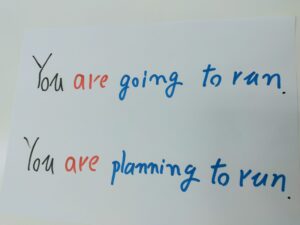 You are going to run.
You are planning to run.